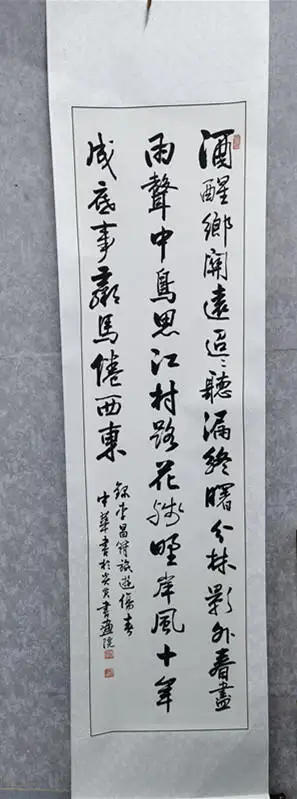 酒醒鄉関遠迢〻聽漏終曙分林影外春盡
雨聲中鳥思江村路花殘野岸風十年
成底事羸馬倦西東
錄李昌符旅遊傷春
中華書於書畫院